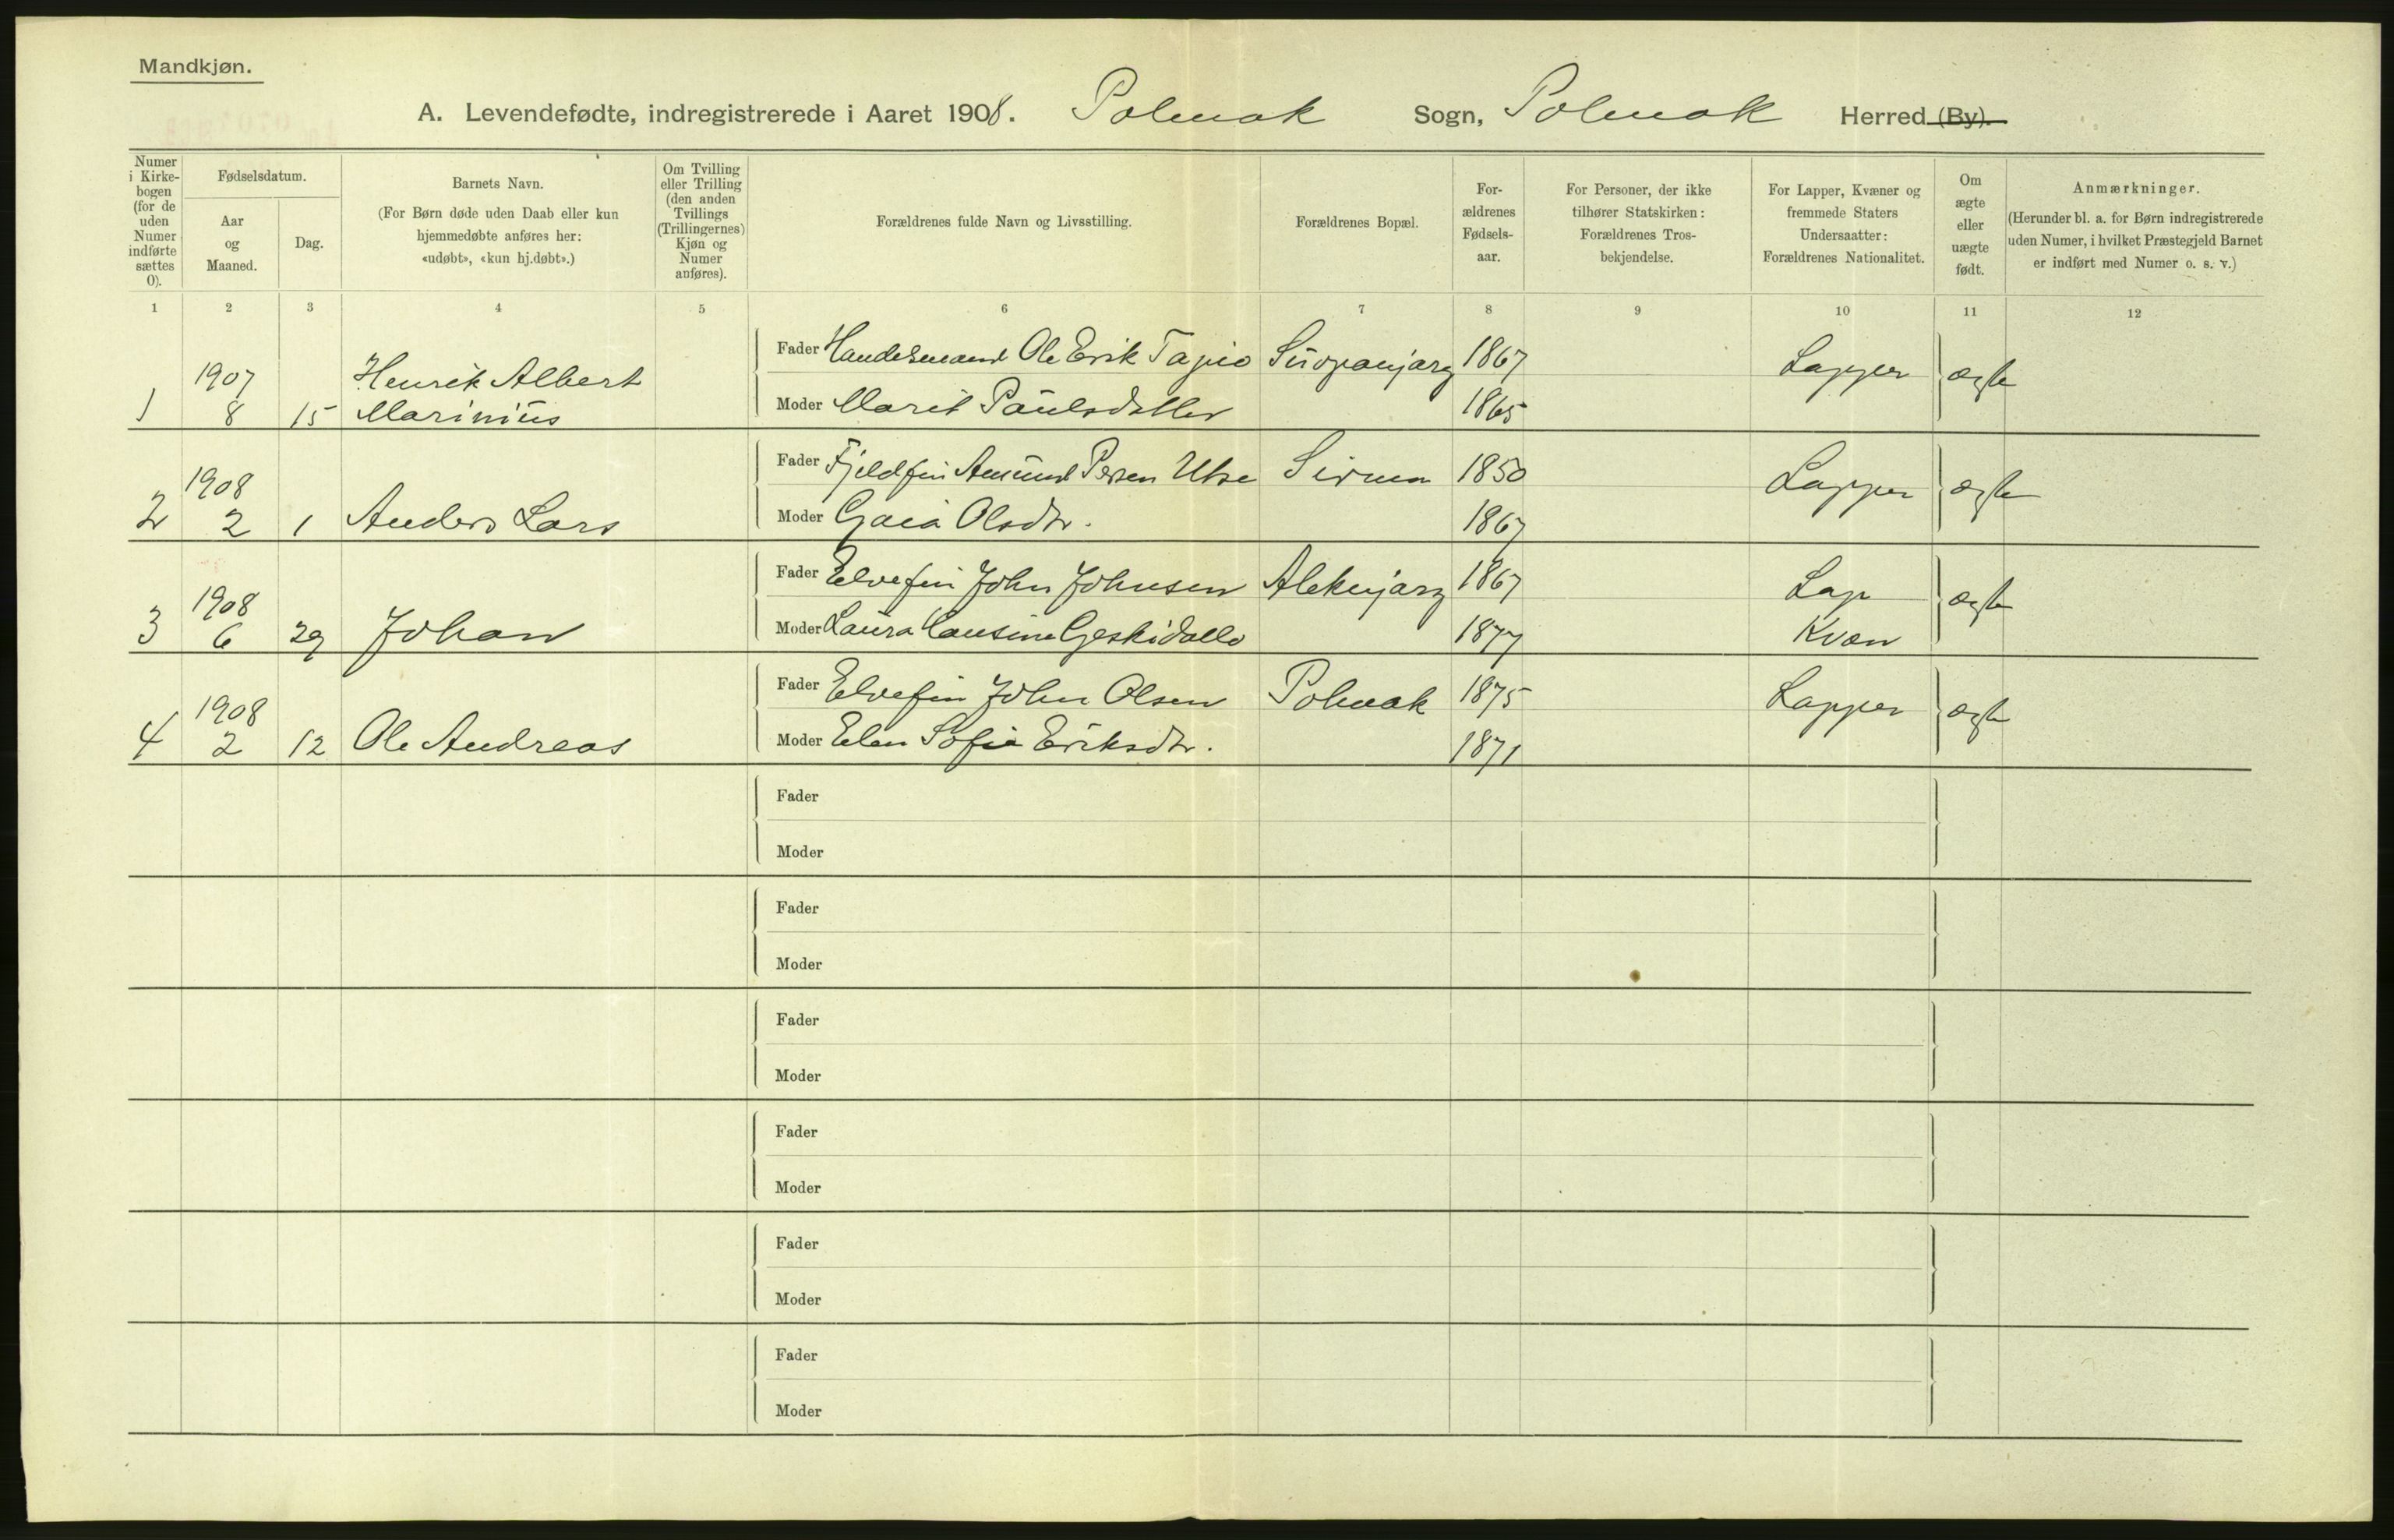 Mandkjøn.
A. Levendefødte, indregistrerede i Aaret 1908. Polmak Sogn, Polmak Herred (By).
Numer i Kirke-bogen (for de uden Numer indførte sættes 0).
Fødselsdatum.
Aar og Maaned.
Dag.
Barnets Navn.
(For Børn døde uden Daab eller kun hjemmedøbte anføres her: «udøbt», «kun hj.døbt».)
Om Tvilling eller Trilling (den anden Tvillings (Trillingernes) Kjøn og Numer anføres).
Forældrenes fulde Navn og Livsstilling.
Forældrenes Bopæl.
For-ældrenes Fødsels-aar.
For Personer, der ikke tilhører Statskirken: Forældrenes Tros-bekjendelse.
For Lapper, Kvæner og fremmede Staters Undersaatter: Forældrenes Nationalitet.
Om ægte eller uægte født.
Anmærkninger.
(Herunder bl. a. for Børn indregistrerede uden Numer, i hvilket Præstegjeld Barnet er indført med Numer o. s. v.)
1 2 3 4 5 6 7 8 9 10 11 12
Fader Handelsmand Ole Erik Tapio Suopanjarg 1867 Lapper ægte
1907 Henrik Albert
1 8 15 Marinius Moder Marit Paulsdatter 1865
Fader Fjeldfin Amund Persen Utse Sirma 1850 Lapper ægte
1908
2 2 1 Anders Lars Moder Gaia Olsdtr. 1867
Fader Elvefin John Johnsen Aleknjarg 1867 Lap ægte
1908
3 6 29 Johan Moder Laura Hansine 1877 Kvæn
Fader Elvefin John Olsen Polmak 1875 Lapper ægte
1908
4 2 12 Ole Andreas Moder Elen Sofie Eriksdtr. 1871
Fader
Moder
Fader
Moder
Fader
Moder
Fader
Moder
Fader
Moder
Fader
Moder